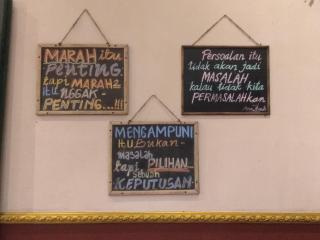 MARAH itu
Penting.
tapi MARAH2
itu NGGAK-
PENTING...!!!
Persoalan itu
tidak akan jadi
MASALAH,
kalau tidak kita
PERMASALAHkan
MENGAMPUNI
itu Bukan-
masalah
PILIHAN
tapi sebuah
KEPUTUSAN.